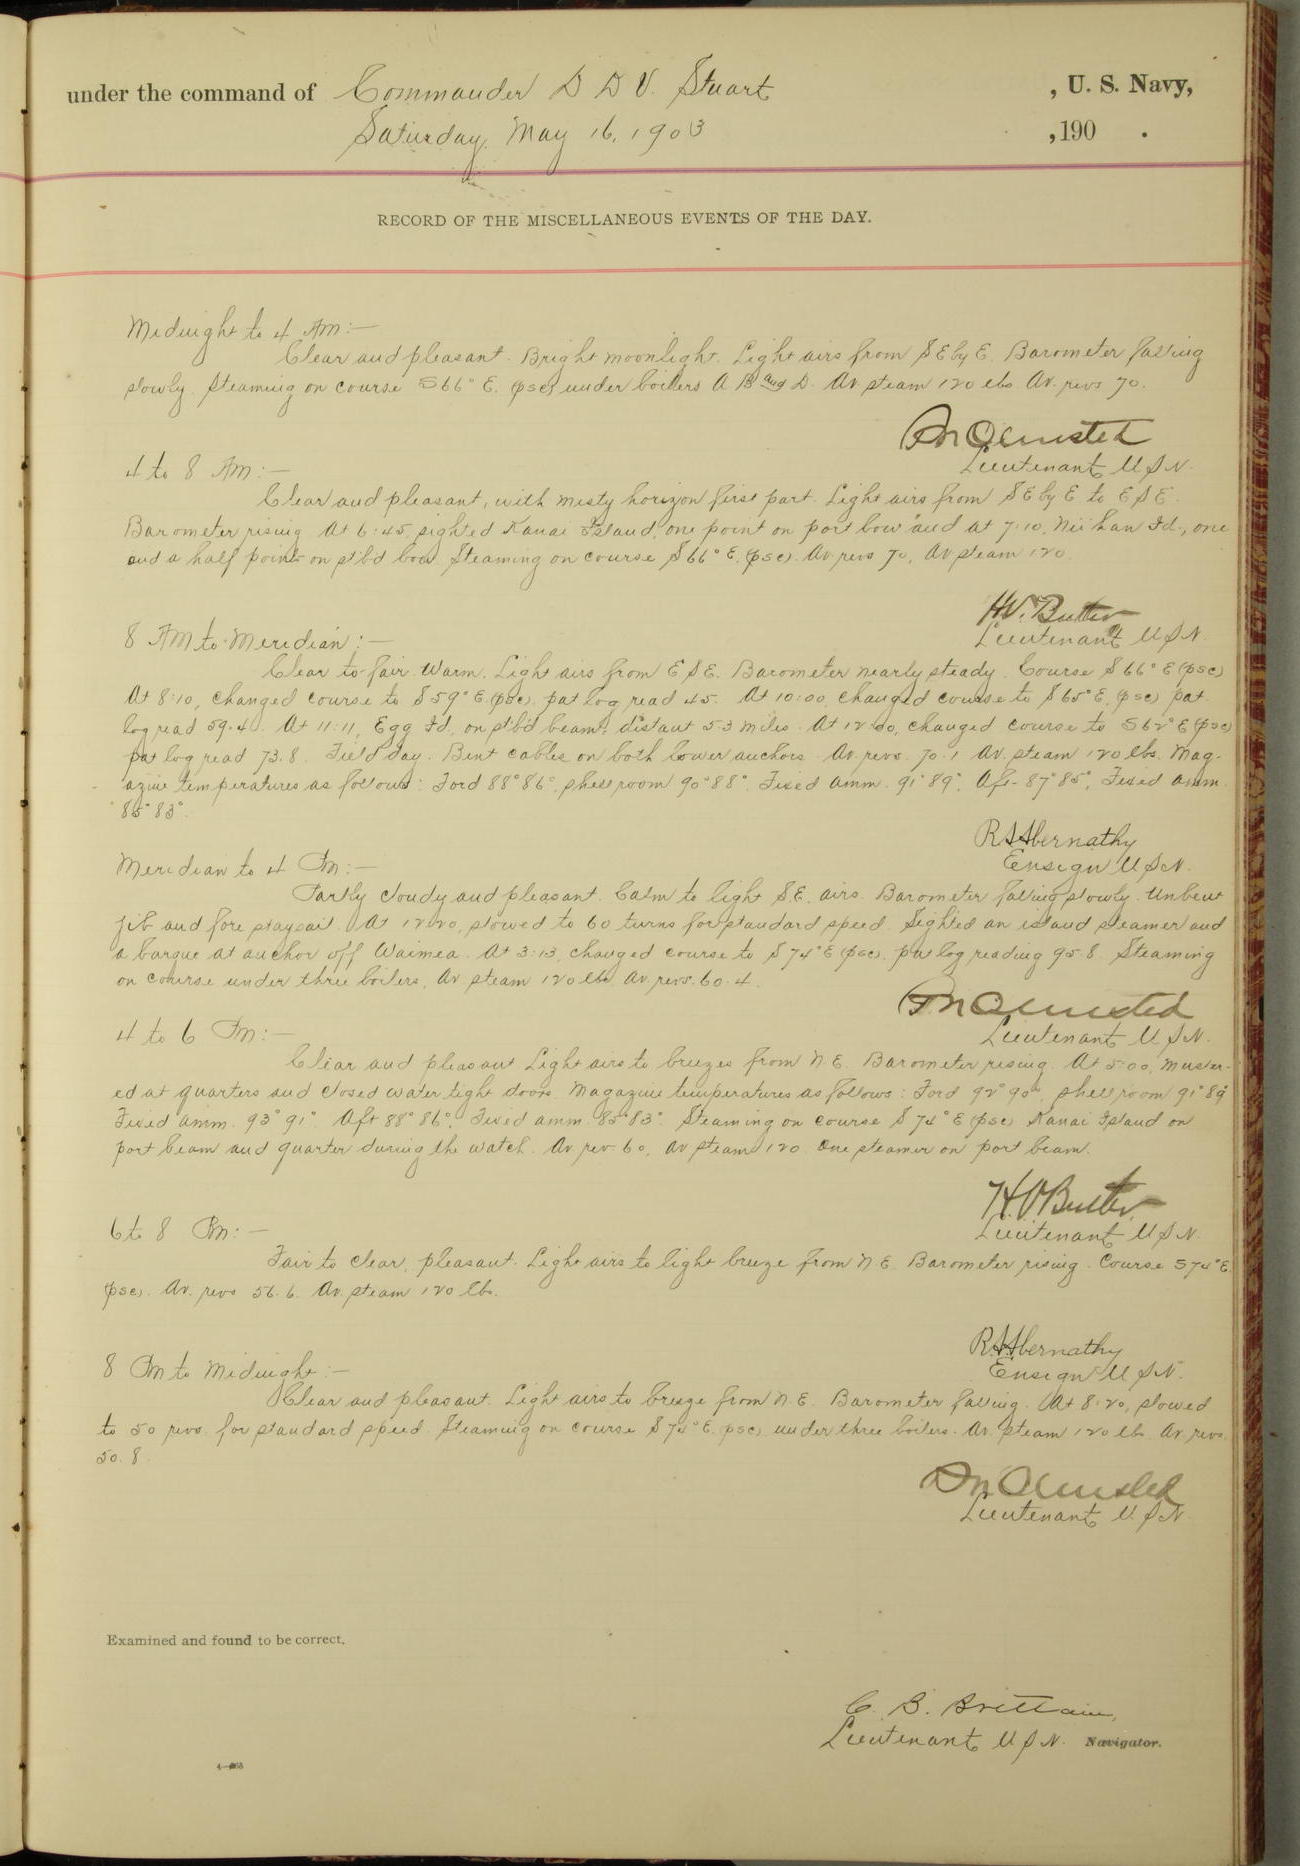 under the command of Commander D D V. Stuart , U. S. Navy,
Saturday, May 16, 1903 , 190 .
RECORD OF THE MISCELLANEOUS EVENTS OF THE DAY.
Midnight to 4 AM:—
Clear and pleasant. Bright moonlight. Light airs from SE by E. Barometer falling
slowly. Steaming on course S66° E. (psc) under boilers A B and D. Av. steam 120 lbs Av. revs 70.
Olmsted
Lieutenant U S N.
4 to 8 AM:—
Clear and pleasant, with misty horizon first part. Light airs from SE by E to ESE.
Barometer rising. At 6:45, sighted Kauai Island, one point on port bow and at 7:10, Niihau Id., one
and a half points on stbd bow. Steaming on course S 66° E. (psc). Av revs 70, Av steam 120.
H.V. Butler
Lieutenant U S N.
8 AM to Meridian:—
Clear to fair. Warm. Light airs from E S E. Barometer nearly steady. Course S 66° E (psc)
At 8:10, changed course to S 59° E. (psc). pat log read 45. At 10:00, changed course to S 65° E. (psc) pat.
log read 59.4. At 11:11, Egg Id. on stbd beam, distant 5.3 miles. At 12:00, changed course to S 62° E (psc)
pat log read 73.8. Field day. Bent cables on both bower anchors. Av. revs. 70.1 Av. steam 120 lbs. Mag-
azine temperatures as follows: Ford 88° 86°, shell room 90° 88°. Fixed amm. 91° 89°. Aft- 87° 85°, Fixed amm.
85° 83°.
R S Abernathy
Ensign U S N.
Meridian to 4 PM:—
Partly cloudy and pleasant. Calm to light S.E. airs. Barometer falling slowly. Unbent
jib and fore staysail. At 12:20, slowed to 60 turns for standard speed. Sighted an island steamer and
a barque at anchor off Waimea. At 3:13, changed course to S 74° E (psc). pat log reading 95.8. Steaming
on course under three boilers, Av steam 120 lbs, Av. revs. 60.4.
Olmsted
Lieutenant U S N.
4 to 6 PM:—
Clear and pleasant Light airs to breezes from N E. Barometer rising. At 5:00, muster-
ed at quarters and closed water tight doors. Magazine temperatures as follows: Ford 92° 90°, shell room 91° 89°
Fixed amm. 93° 91°. Aft 88° 86°, Fixed amm. 85° 83°. Steaming on course S 74° E (psc) Kauai Island on
port beam and quarter during the watch. Av rev. 60, Av steam 120. One steamer on port beam.
H.V. Butler
Lieutenant U S N.
6 to 8 PM:—
Fair to clear, pleasant. Light airs to light breeze from N E. Barometer rising. Course S74° E.
(psc). Av. revs 56.6. Av. steam 120 lbs.
R.S. Abernathy
Ensign U S N.
8 PM to Midnight:—
Clear and pleasant. Light airs to breeze from N. E. Barometer falling. At 8:20, slowed
to 50 revs. for standard speed. Steaming on course S 74° E. (psc) under three boilers. Av. steam 120 lbs Av. revs.
50.8.
Olmsted
Lieutenant U S N.
Examined and found to be correct.
C. B. Brittain,
Lieutenant U S N. Navigator.